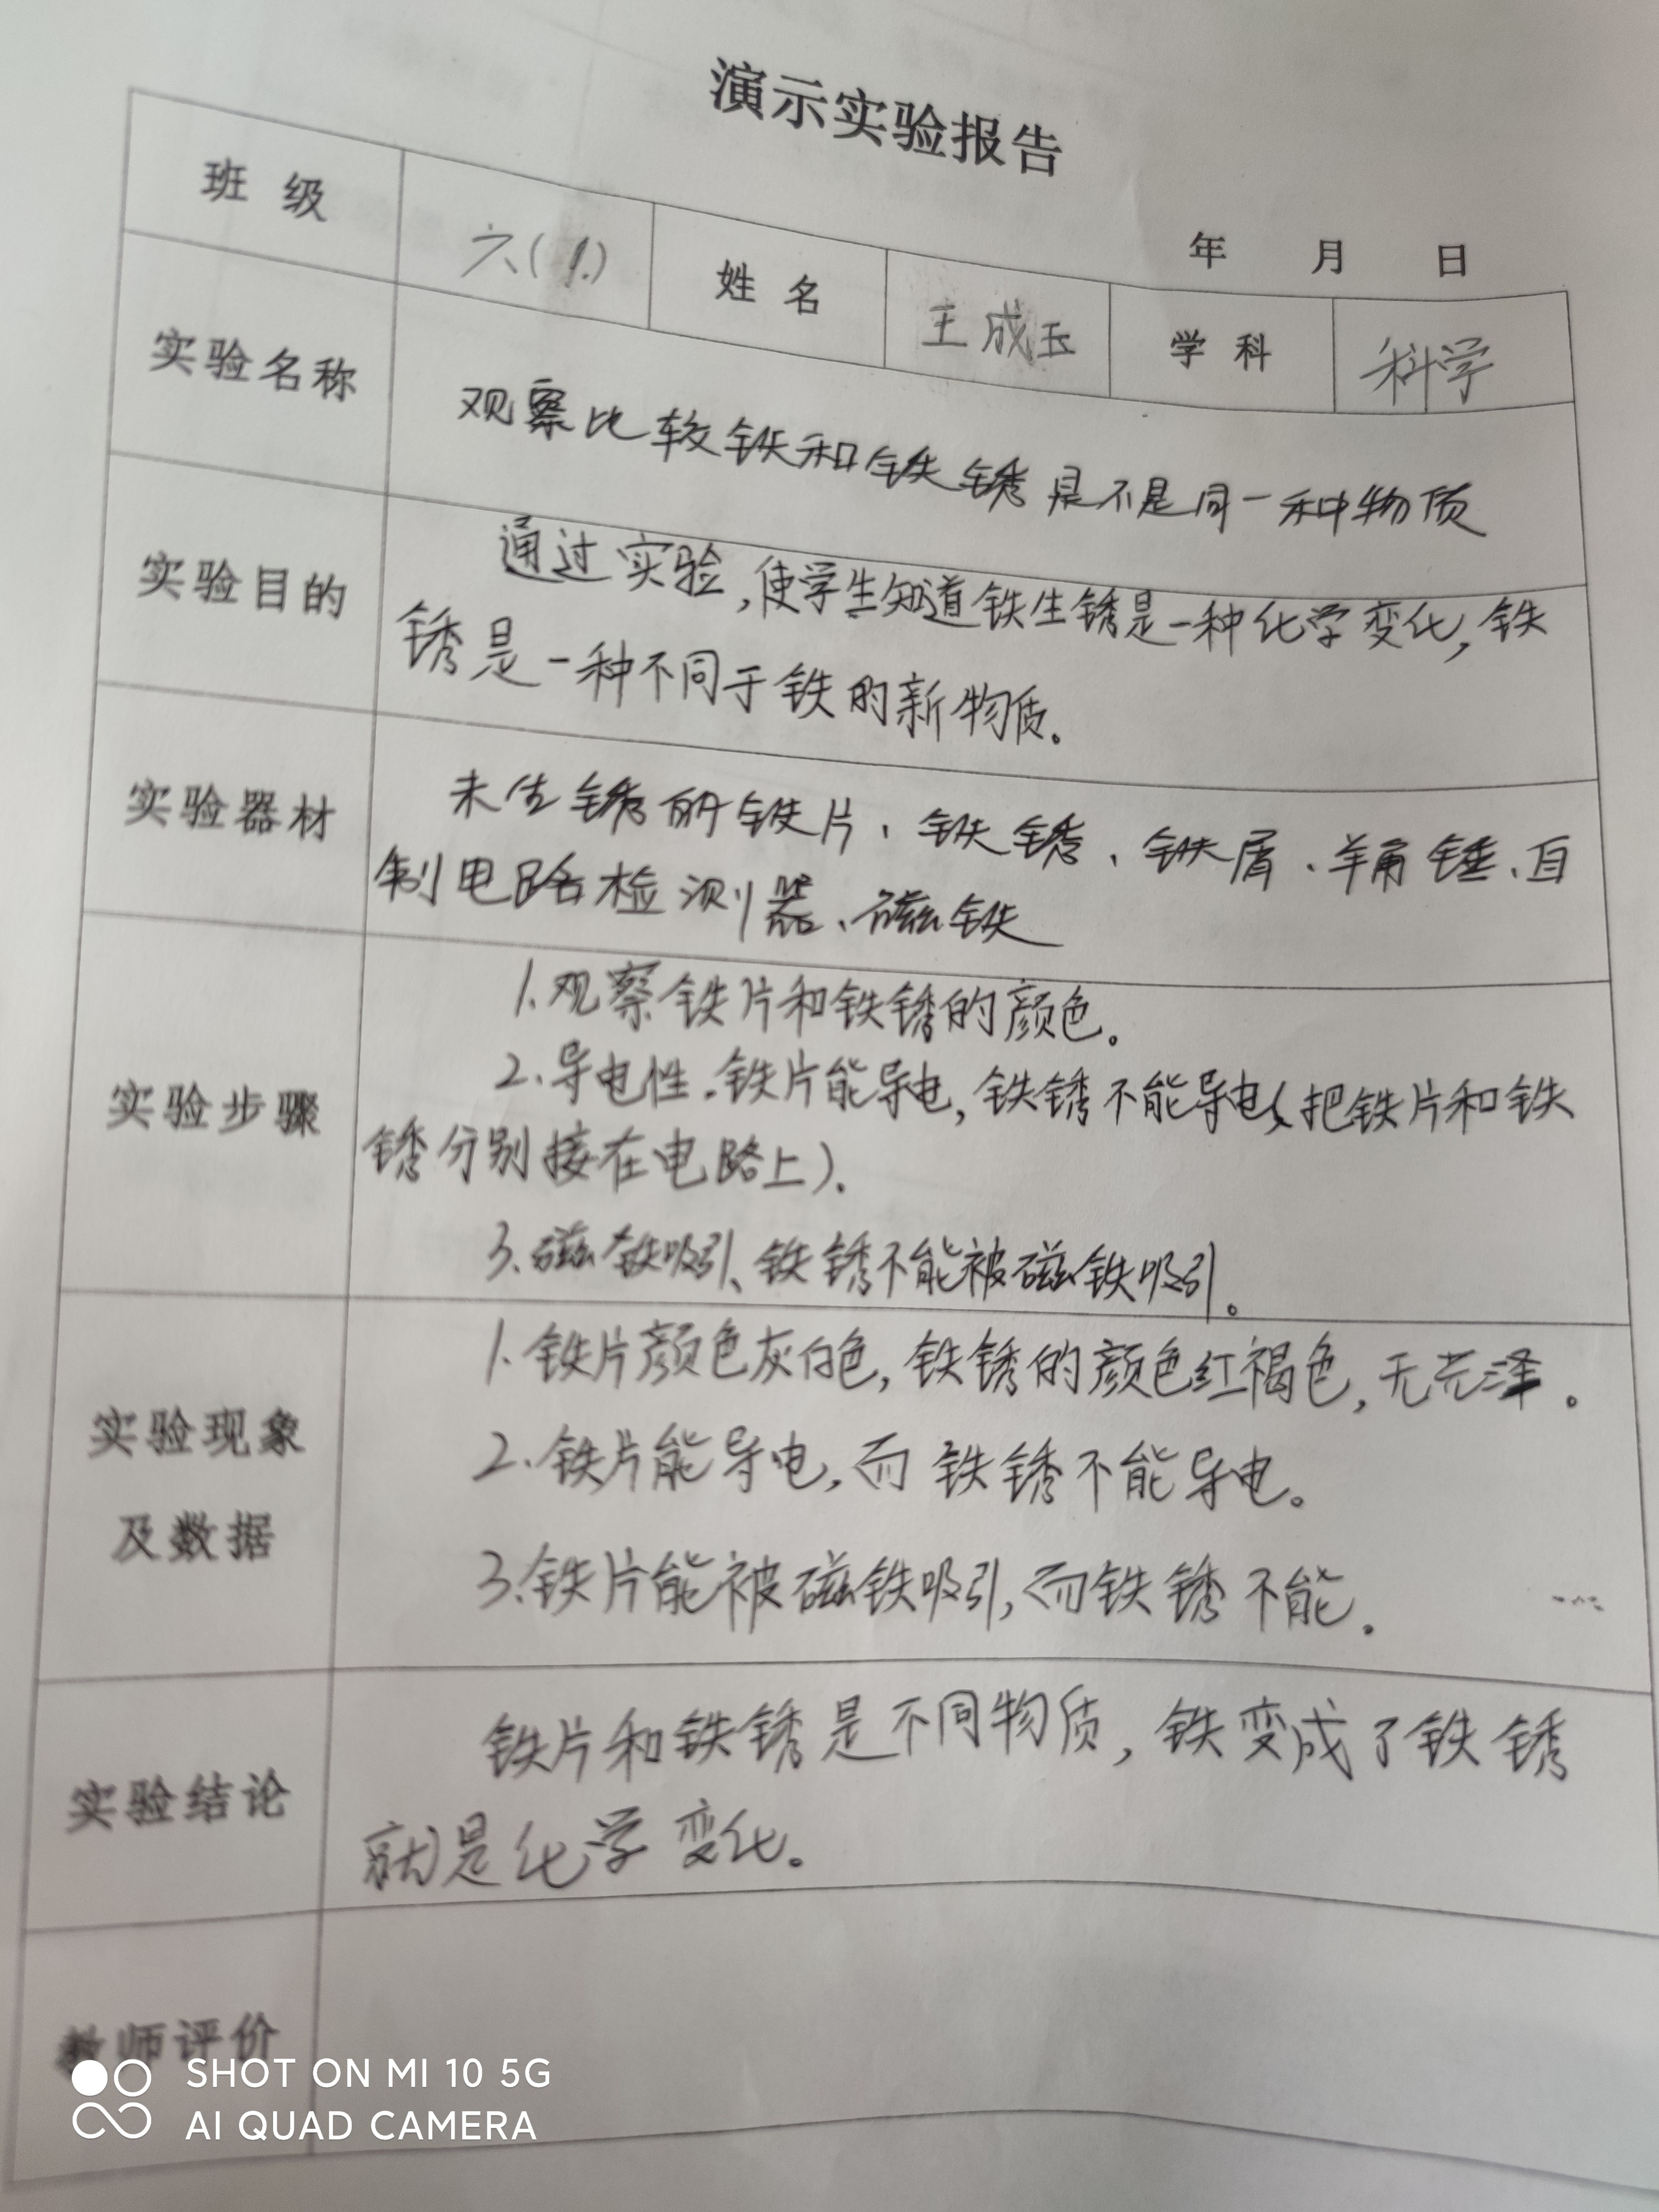 演示实验报告
年 月 日
班 级 六(1.) 姓 名 王成玉 学 科 科学
实验名称 观察比较铁和铁锈是不是同一种物质
实验目的 通过实验,使学生知道铁生锈是一种化学变化,铁
锈是一种不同于铁的新物质。
实验器材 未生锈的铁片、铁锈、铁屑、羊角锤、自
制电路检测器、磁铁
实验步骤 1.观察铁片和铁锈的颜色。
2.导电性.铁片能导电,铁锈不能导电(把铁片和铁
锈分别接在电路上).
3.磁铁吸引、铁锈不能被磁铁吸引。
实验现象
及数据
1.铁片颜色灰白色,铁锈的颜色红褐色,无光泽。
2.铁片能导电,而铁锈不能导电。
3.铁片能被磁铁吸引,而铁锈不能.
实验结论 铁片和铁锈是不同物质,铁变成了铁锈
就是化学变化。
教师评价
SHOT ON MI 10 5G
AI QUAD CAMERA